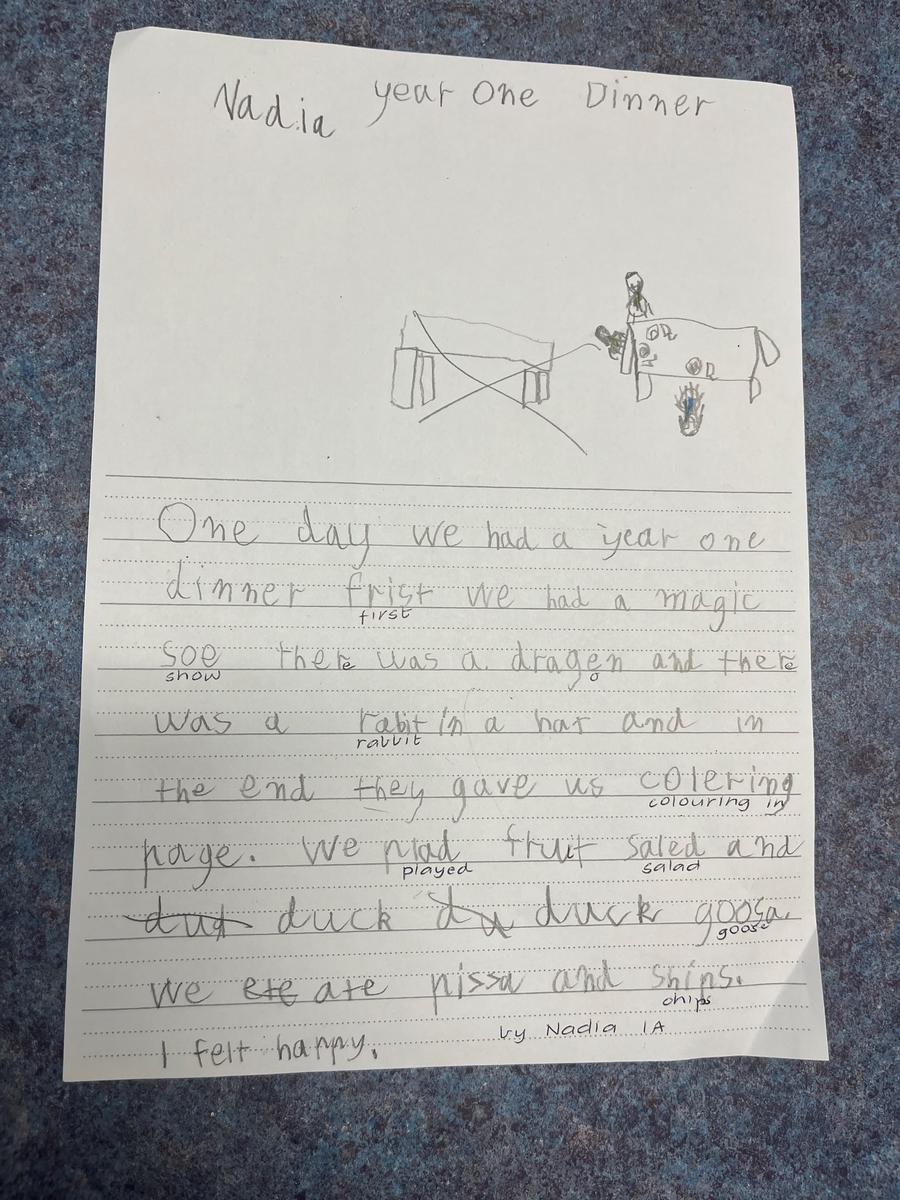 Nadia year one Dinner
One day we had a year one
dinner frist we had a magic
first
soe there was a dragen and there
show e o e
was a rabit in a hat and in
rabbit
the end they gave us colering
colouring in
page. We plad fruit saled and
played salad
dut duck du duck goosa.
goose
We ete ate pissa and ships.
chips
I felt happy.
by Nadia 1A